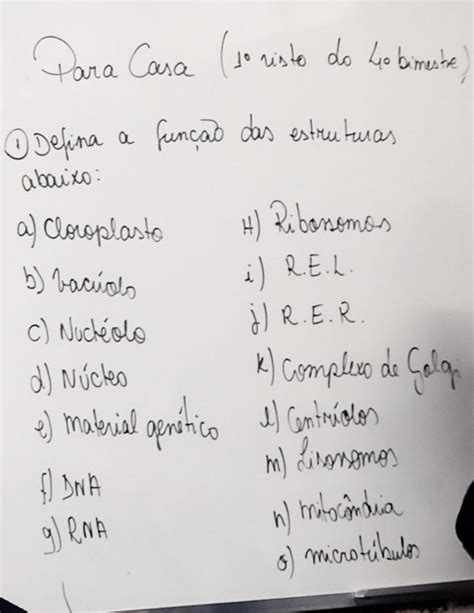 Para Casa (1º visto do 4º bimestre)
① Defina a função das estruturas
abaixo:
a) Cloroplasto
b) Vacúolo
c) Nucléolo
d) Núcleo
e) material genético
f) DNA
g) RNA
H) Ribossomos
i) R.E.L.
j) R.E.R.
k) Complexo de Golgi
l) Centríolos
m) Lisossomos
n) mitocôndia
o) microtúbulos